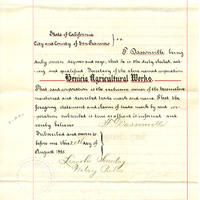 State of California
City and County of San Francisco } ss
F. Dassonville being
duly sworn deposes and says; that he is the duly elected, act-
ing and qualified Secretary of the above named corporation
Benicia Agricultural Works.
That said corporation is the exclusive owner of the
mentioned and described trade mark and name. That the
foregoing statement and claim of trade mark by said cor-
poration subscribed is true as affiant is informed and
verily believes
F. Dassonville
Subscribed and sworn to
before me this day of
August
Notary Public